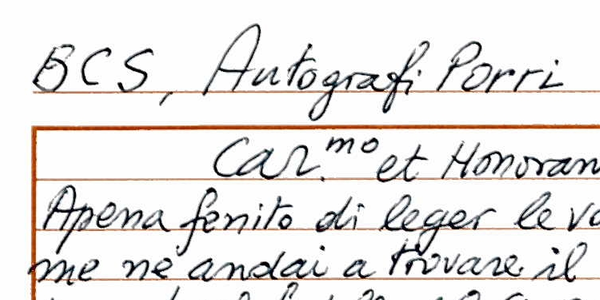 BCS, Autografi Porri
Car.mo et Honoran
Apena fenito di leger le vo
me ne andai a trovare il